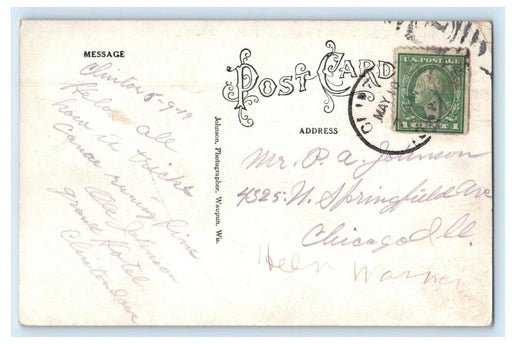 MESSAGE
POST CARD
ADDRESS
Clinton 5-9-19
Hello all
how is tricks
Canoe running fine
Ole Johnson
grand Hotel
Clinton Iowa
Johnson, Photographer, Waupun, Wis.
U.S. POSTAGE
1 CENT 1
MAY
Mr. P. A. Johnson
4325 N. Springfield Ave
Chicago Ill.
Warner